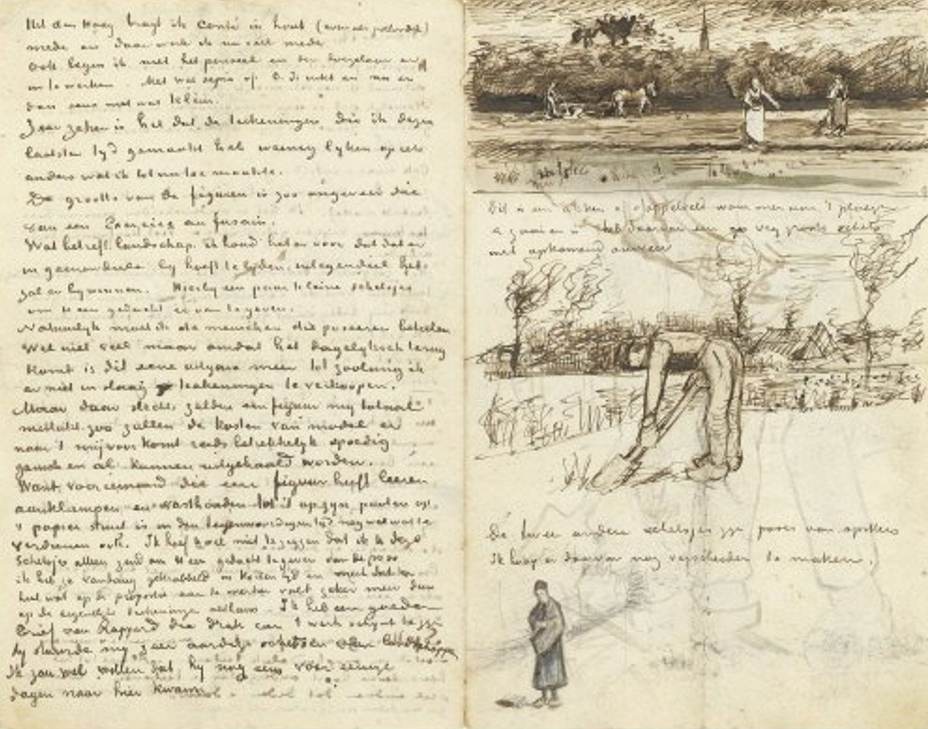 Uit den Haag bragt ik Conté in hout (evenals potlood)
mede en daar werk ik nu veel mede
Ook begin ik met het penseel en den doezelaar er
in te werken. Met wat sepia of O.I. inkt en nu en
dan eens met wat kleur.
Zeer zeker is het dat de teekeningen die ik dezen
laatsten tyd gemaakt heb weinig lyken op iets
anders wat ik tot nu toe maakte.
De grootte van de figuren is zoo ongeveer die
van een Exercice au fusain.
Wat betreft landschap ik houd het er voor dat dat er
in geenendeele by hoeft te lyden. integendeel het
zal er by winnen. Hierby een paar kleine schetsjes
om U een gedacht er van te geven.
Natuurlyk moet ik de menschen die poseeren betalen
Wel niet veel maar omdat het dagelyksch terug
komt is dit eene uitgave meer tot zoolang ik
er niet in slaag teekeningen te verkoopen.
Maar daar slechts zelden een figuur my totaal
mislukt zoo zullen de kosten van model er
naar 't my voorkomt reeds betrekkelyk spoedig
geheel en al kunnen uitgehaald worden.
Want voor iemand die een figuur heeft leeren
aanklampen en vasthouden tot 't op zyn pooten op
't papier staat is in den tegenwoordigen tyd nog wel wat te
verdienen ook. Ik hoef U wel niet te zeggen dat ik U deze
schetsjes alleen zend om U een gedacht te geven van de pose
ik heb ze vandaag gekrabbeld in korten tyd en
op de proportie
op de eigentlyke teekeninge althans. Ik heb een goeden
brief van Rappard die druk aan 't werk schynt te zyn
hy stuurde my zeer aardige landschappen
Ik zou wel willen dat hy nog eens voor eenige
dagen naar hier kwam.
Dit is een akker of stoppelveld waar men aan 't ploegen
& zaaien is heb daarvan een vry groote schets
met opkomend onweer
De twee andere schetsjes zyn poses van spitters
Ik hoop er daarvan nog verscheiden te maken.